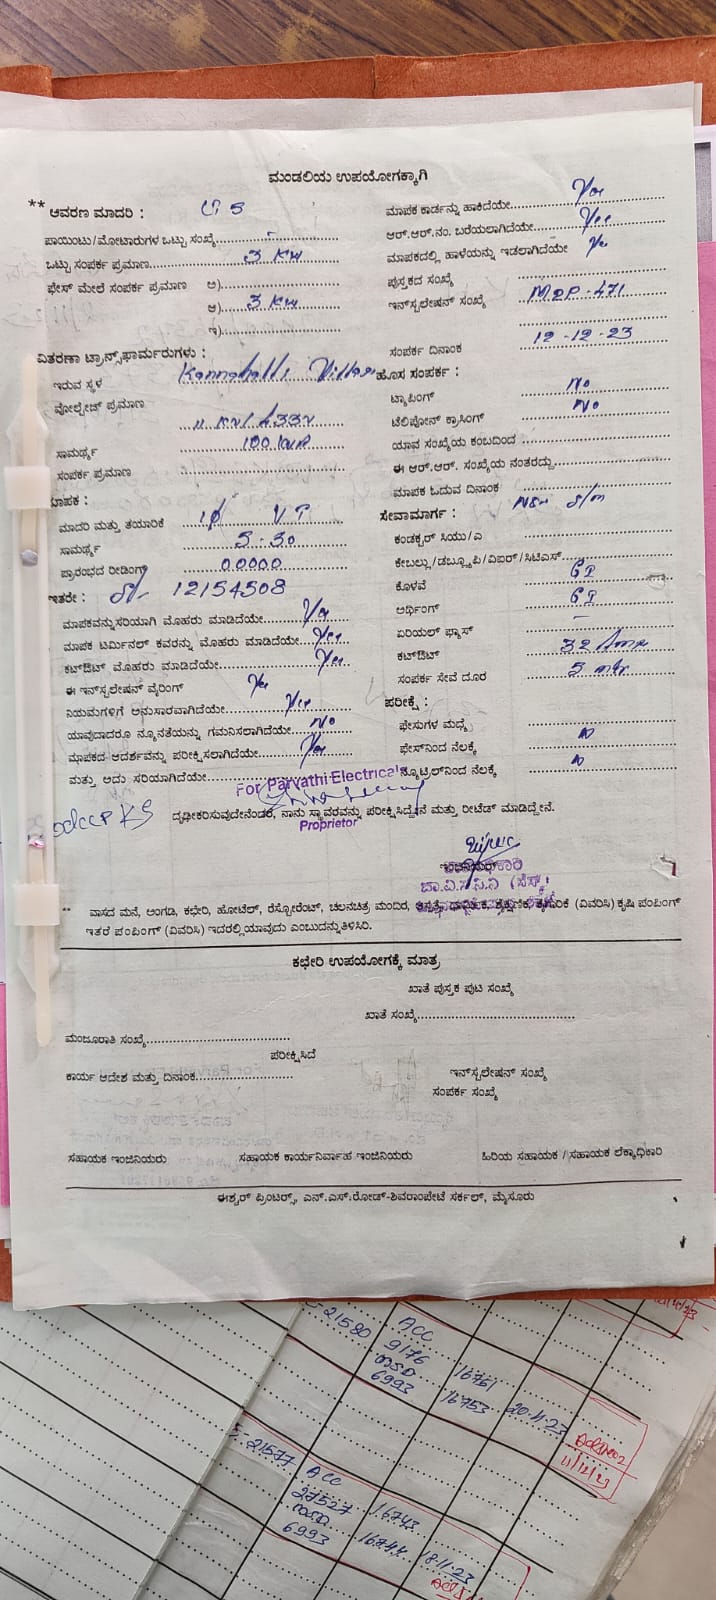 ಮಂಡಲಿಯ ಉಪಯೋಗಕ್ಕಾಗಿ
** ಆವರಣ ಮಾದರಿ :
ಪಾಯಿಂಟು/ಮೋಟಾರುಗಳ ಒಟ್ಟು ಸಂಖ್ಯೆ -
ಒಟ್ಟು ಸಂಪರ್ಕ ಪ್ರಮಾಣ 3 KW
ಫೇಸ್ ಮೇಲೆ ಸಂಪರ್ಕ ಪ್ರಮಾಣ ಅ)
ಆ) 3 KW
ಇ)
ವಿತರಣಾ ಟ್ರಾನ್ಸ್‌ಫಾರ್ಮರುಗಳು :
ಇರುವ ಸ್ಥಳ Kannahalli Village
ವೋಲ್ಟೇಜ್ ಪ್ರಮಾಣ 11 KV/433V
ಸಾಮರ್ಥ್ಯ 100 KVA
ಸಂಪರ್ಕ ಪ್ರಮಾಣ
ಮಾಪಕ :
ಮಾದರಿ ಮತ್ತು ತಯಾರಿಕೆ 1ϕ VT
ಸಾಮರ್ಥ್ಯ 5-30
ಪ್ರಾರಂಭದ ರೀಡಿಂಗ್ 00000
ಇತರೇ : Sl- 12154508
ಮಾಪಕವನ್ನು ಸರಿಯಾಗಿ ಮೊಹರು ಮಾಡಿದೆಯೇ Yes
ಮಾಪಕ ಟರ್ಮಿನಲ್ ಕವರನ್ನು ಮೊಹರು ಮಾಡಿದೆಯೇ Yes
ಕಟ್‌ಔಟ್ ಮೊಹರು ಮಾಡಿದೆಯೇ Yes
ಈ ಇನ್‌ಸ್ಟಲೇಷನ್ ವೈರಿಂಗ್ Yes
ನಿಯಮಗಳಿಗೆ ಅನುಸಾರವಾಗಿದೆಯೇ Yes
ಯಾವುದಾದರೂ ನ್ಯೂನತೆಯನ್ನು ಗಮನಿಸಲಾಗಿದೆಯೇ No
ಮಾಪಕದ ಆದರ್ಶವನ್ನು ಪರೀಕ್ಷಿಸಲಾಗಿದೆಯೇ Yes
ಮತ್ತು ಅದು ಸರಿಯಾಗಿದೆಯೇ
ಮಾಪಕ ಕಾರ್ಡನ್ನು ಹಾಕಿದೆಯೇ Yes
ಆರ್.ಆರ್.ನಂ. ಬರೆಯಲಾಗಿದೆಯೇ Yes
ಮಾಪಕದಲ್ಲಿ ಹಾಳೆಯನ್ನು ಇಡಲಾಗಿದೆಯೇ Yes
ಪುಸ್ತಕದ ಸಂಖ್ಯೆ
ಇನ್‌ಸ್ಟಲೇಷನ್ ಸಂಖ್ಯೆ M2P-471
ಸಂಪರ್ಕ ದಿನಾಂಕ 12-12-23
ಹೊಸ ಸಂಪರ್ಕ :
ಟ್ಯಾಪಿಂಗ್ No
ಟೆಲಿಫೋನ್ ಕ್ರಾಸಿಂಗ್ No
ಯಾವ ಸಂಖ್ಯೆಯ ಕಂಬದಿಂದ
ಈ ಆರ್.ಆರ್. ಸಂಖ್ಯೆಯ ನಂತರದ್ದು
ಮಾಪಕ ಓದುವ ದಿನಾಂಕ
ಸೇವಾಮಾರ್ಗ :
ಕಂಡಕ್ಟರ್ ಸಿಯು/ಎ
ಕೇಬಲ್ಲು/ಡಬ್ಲ್ಯೂಪಿ/ವಿಐರ್/ಸಿಟಿಎಸ್
ಕೊಳವೆ GI
ಅರ್ಥಿಂಗ್ GI
ಏರಿಯಲ್ ಫ್ಯೂಸ್ -
ಕಟ್‌ಔಟ್ 32 Amp
ಸಂಪರ್ಕ ಸೇವೆ ದೂರ 5 mtr
ಪರೀಕ್ಷೆ :
ಫೇಸುಗಳ ಮಧ್ಯೆ
ಫೇಸ್‌ನಿಂದ ನೆಲಕ್ಕೆ
ನ್ಯೂಟ್ರಲ್‌ನಿಂದ ನೆಲಕ್ಕೆ
For Parvathi Electricals
ದೃಢೀಕರಿಸುವುದೇನೆಂದರೆ, ನಾನು ಸ್ಥಾವರವನ್ನು ಪರೀಕ್ಷಿಸಿದ್ದೇನೆ ಮತ್ತು ರೀಟೆಡ್ ಮಾಡಿದ್ದೇನೆ.
Proprietor
** ವಾಸದ ಮನೆ, ಅಂಗಡಿ, ಕಛೇರಿ, ಹೋಟೆಲ್, ರೆಸ್ಟೋರೆಂಟ್, ಚಲನಚಿತ್ರ ಮಂದಿರ, ಆಸ್ಪತ್ರೆ, ಧಾರ್ಮಿಕ, ಶೈಕ್ಷಣಿಕ, ಕೈಗಾರಿಕೆ (ವಿವರಿಸಿ) ಕೃಷಿ ಪಂಪಿಂಗ್
ಇತರೆ ಪಂಪಿಂಗ್ (ವಿವರಿಸಿ) ಇದರಲ್ಲಿ ಯಾವುದು ಎಂಬುದನ್ನು ತಿಳಿಸಿರಿ.
ಕಛೇರಿ ಉಪಯೋಗಕ್ಕೆ ಮಾತ್ರ
ಖಾತೆ ಪುಸ್ತಕ ಪುಟ ಸಂಖ್ಯೆ
ಖಾತೆ ಸಂಖ್ಯೆ
ಮಂಜೂರಾತಿ ಸಂಖ್ಯೆ
ಪರೀಕ್ಷಿಸಿದೆ
ಕಾರ್ಯ ಆದೇಶ ಮತ್ತು ದಿನಾಂಕ
ಇನ್‌ಸ್ಟಲೇಷನ್ ಸಂಖ್ಯೆ
ಸಂಪರ್ಕ ಸಂಖ್ಯೆ
ಸಹಾಯಕ ಇಂಜಿನಿಯರು ಸಹಾಯಕ ಕಾರ್ಯನಿರ್ವಾಹ ಇಂಜಿನಿಯರು ಹಿರಿಯ ಸಹಾಯಕ / ಸಹಾಯಕ ಲೆಕ್ಕಾಧಿಕಾರಿ
ಈಶ್ವರ್ ಪ್ರಿಂಟರ್ಸ್, ಎನ್.ಎಸ್.ರೋಡ್-ಶಿವರಾಂಪೇಟೆ ಸರ್ಕಲ್, ಮೈಸೂರು
21580 ACC
9176 16761
MSD
6993 16753 20-11-23
11/12/23
21577 ACC
27527 16743
MSD
6993 16744 18-11-23